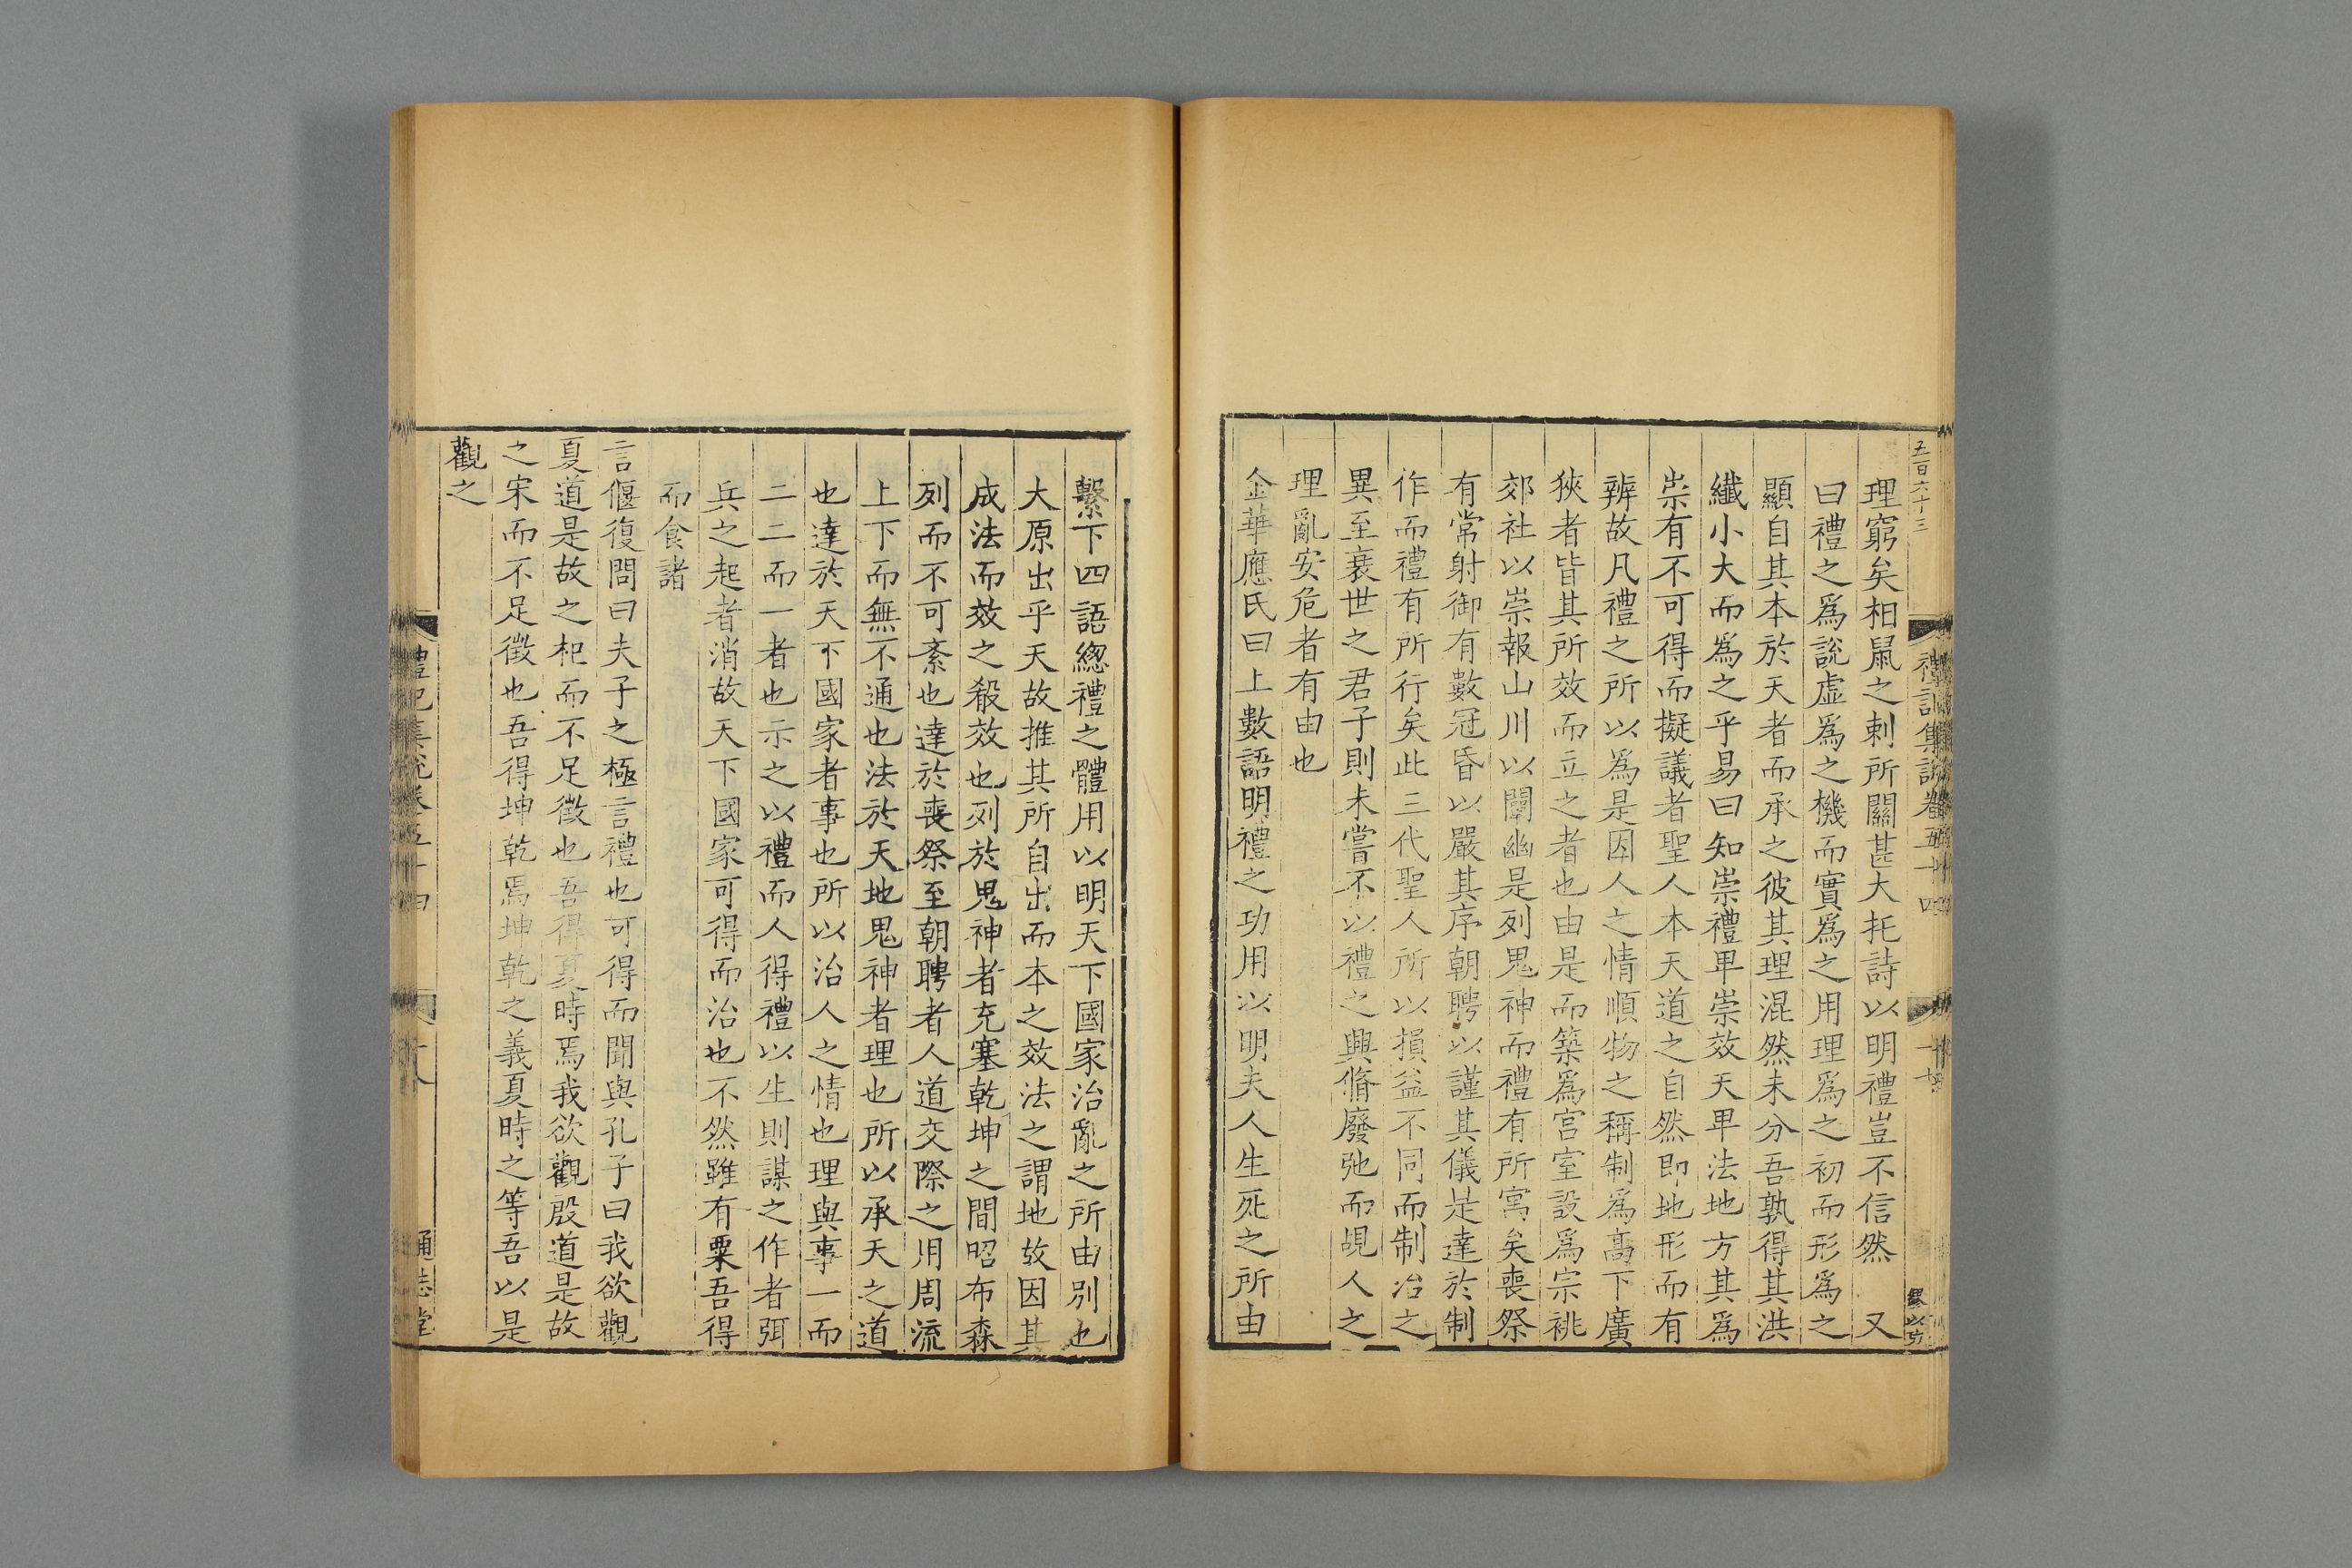 五百六十三
理窮矣相鼠之刺所關甚大托詩以明禮豈不信然　又
曰禮之爲說虛爲之機而實爲之用理爲之初而形爲之
顯自其本於天者而承之彼其理混然未分吾孰得其洪
纎小大而爲之乎易曰知崇禮卑崇效天卑法地方其爲
崇有不可得而擬議者聖人本天道之自然即地形而有
辨故凡禮之所以爲是因人之情順物之稱制爲高下廣
狹者皆其所效而立之者也由是而築爲宮室設爲宗祧
郊社以崇報山川以闡幽是列鬼神而禮有所寓矣喪祭
有常射御有數冠昏以嚴其序朝聘以謹其儀是達於制
作而禮有所行矣此三代聖人所以損益不同而制治之
異至衰世之君子則未嘗不以禮之興脩廢弛而覘人之
理亂安危者有由也
金華應氏曰上數語明禮之功用以明夫人生死之所由
繫下四語緫禮之體用以明天下國家治亂之所由别也
大原出乎天故推其所自出而本之效法之謂地故因其
成法而效之殽效也列於鬼神者充塞乾坤之間昭布森
列而不可紊也達於喪祭至朝聘者人道交際之用周流
上下而無不通也法於天地鬼神者理也所以承天之道
也達於天下國家者事也所以治人之情也理與事一而
二二而一者也示之以禮而人得禮以生則謀之作者弭
兵之起者消故天下國家可得而治也不然雖有粟吾得
而食諸
言偃復問曰夫子之極言禮也可得而聞與孔子曰我欲觀
夏道是故之杞而不足徵也吾得夏時焉我欲觀殷道是故
之宋而不足徵也吾得坤乾焉坤乾之義夏時之等吾以是
觀之
禮記集說卷五十四
十八
通志堂